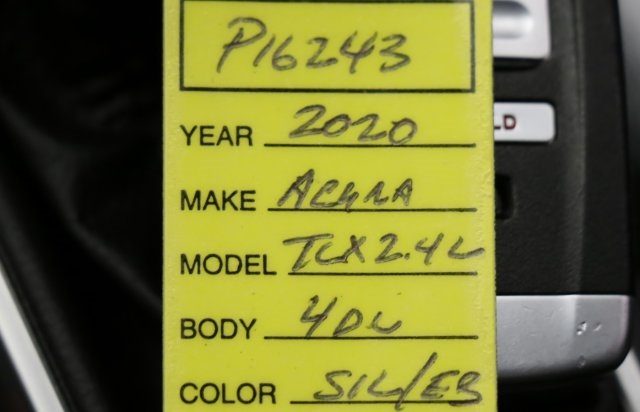 P16243
LD
YEAR 2020
MAKE ACURA
MODEL TLX 2.4L
BODY 4DL
COLOR SIL/EB